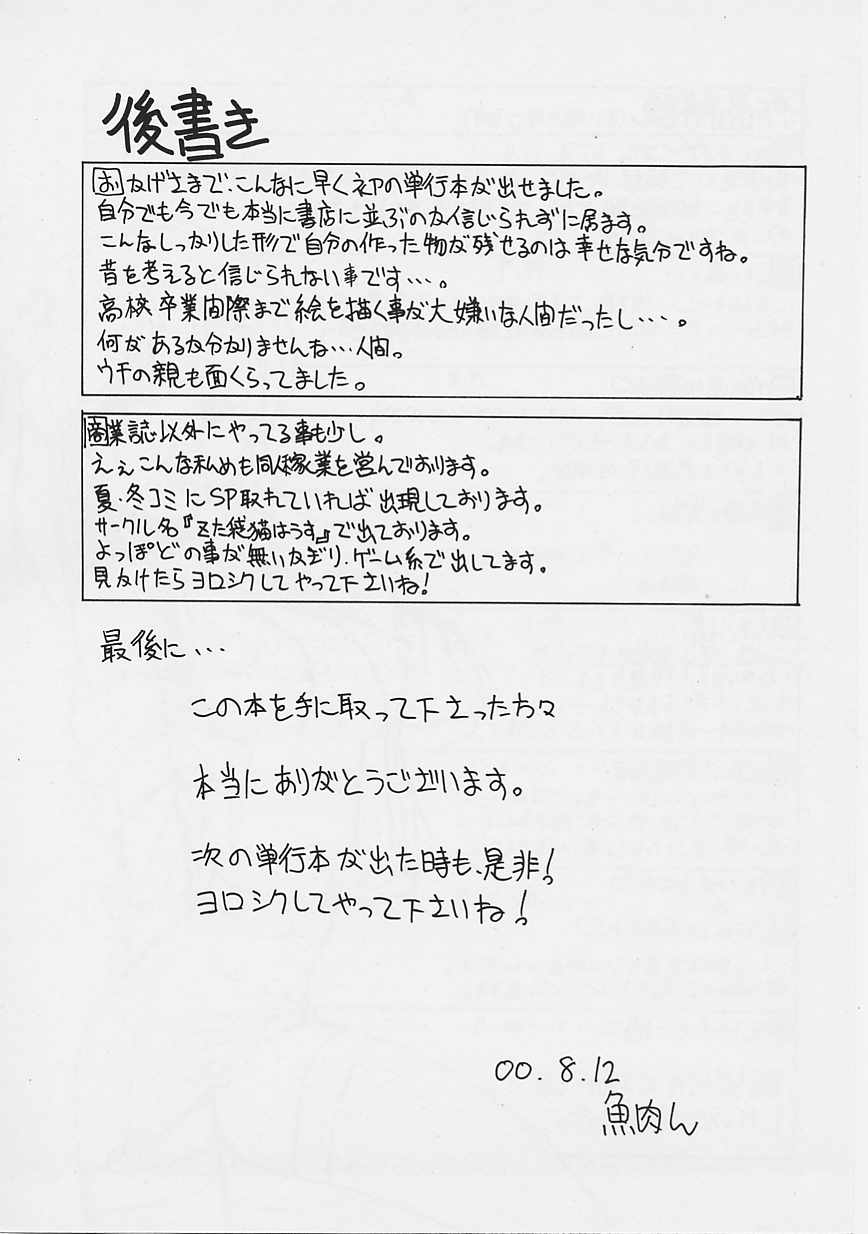 後書き
おかげさまで、こんなに早く初の単行本が出せました。
自分でも今でも本当に書店に並ぶのか信じられずに居ます。
こんなしっかりした形で自分の作った物が残せるのは幸せな気分ですね。
昔を考えると信じられない事です…。
高校卒業間際まで絵を描く事が大嫌いな人間だったし…。
何があるか分かりませんね…人間。
ウチの親も面くらってました。
商業誌以外にやってる事も少し。
えぇこんな私めも同人稼業を営んでおります。
夏・冬コミにSP取れていれば出現しております。
サークル名『ズた袋猫はうす』で出ております。
よっぽどの事が無いかぎり、ゲーム系で出してます。
見かけたらヨロシクしてやって下さいね!
最後に…
この本を手に取って下さった方々
本当にありがとうございます。
次の単行本が出た時も、是非!
ヨロシクしてやって下さいね!
00.8.12
魚肉ん